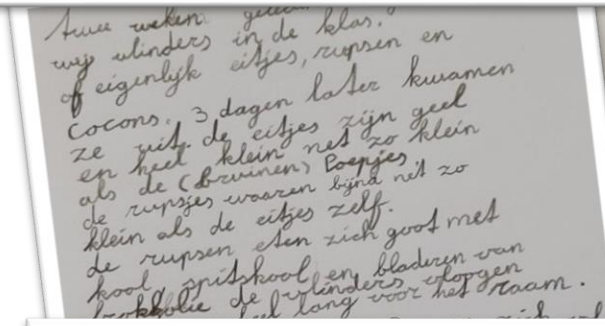 twee weken
wij vlinders in de klas.
of eigenlijk eitjes, rupsen en
cocons. 3 dagen later kwamen
ze uit. de eitjes zijn geel
en heel klein net zo klein
als de (bruinen) Poepjes.
de rupsjes waaren bijna net zo
klein als de eitjes zelf.
de rupsen eten zich groot met
kool, spitskool en bladeren van
de vlinders vlogen
lang voor het raam.